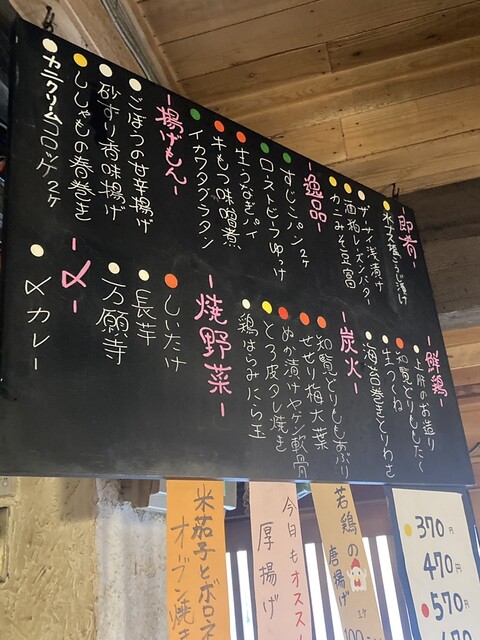 -即肴-
水ナス塩こうじ漬け
ザーサイ浅漬け
酒粕レーズンバター
カニみそ豆富
-逸品-
すじこパン2ヶ
ローストビーフゆっけ
生うなぎパイ
牛もつ味噌煮
イカワタグラタン
-揚げもん-
ごぼうの甘辛揚げ
砂ずり香味揚げ
ししゃもの春巻き
カニクリームコロッケ2ヶ
-鮮鶏-
上肝のお造り
知覧どりももしたく
生つくね
海苔巻きとりわさ
-炭火-
知覧どりももあぶり
せせり梅大葉
ぬか漬けヤゲン軟骨
とろ皮タレ焼き
鶏はらみにら玉
-焼野菜-
しいたけ
長芋
万願寺
-〆-
〆カレー
370円
470円
570円
670
若鶏の唐揚げ
今日もオススメ
厚揚げ
米茄子とボロネ
オーブン焼き